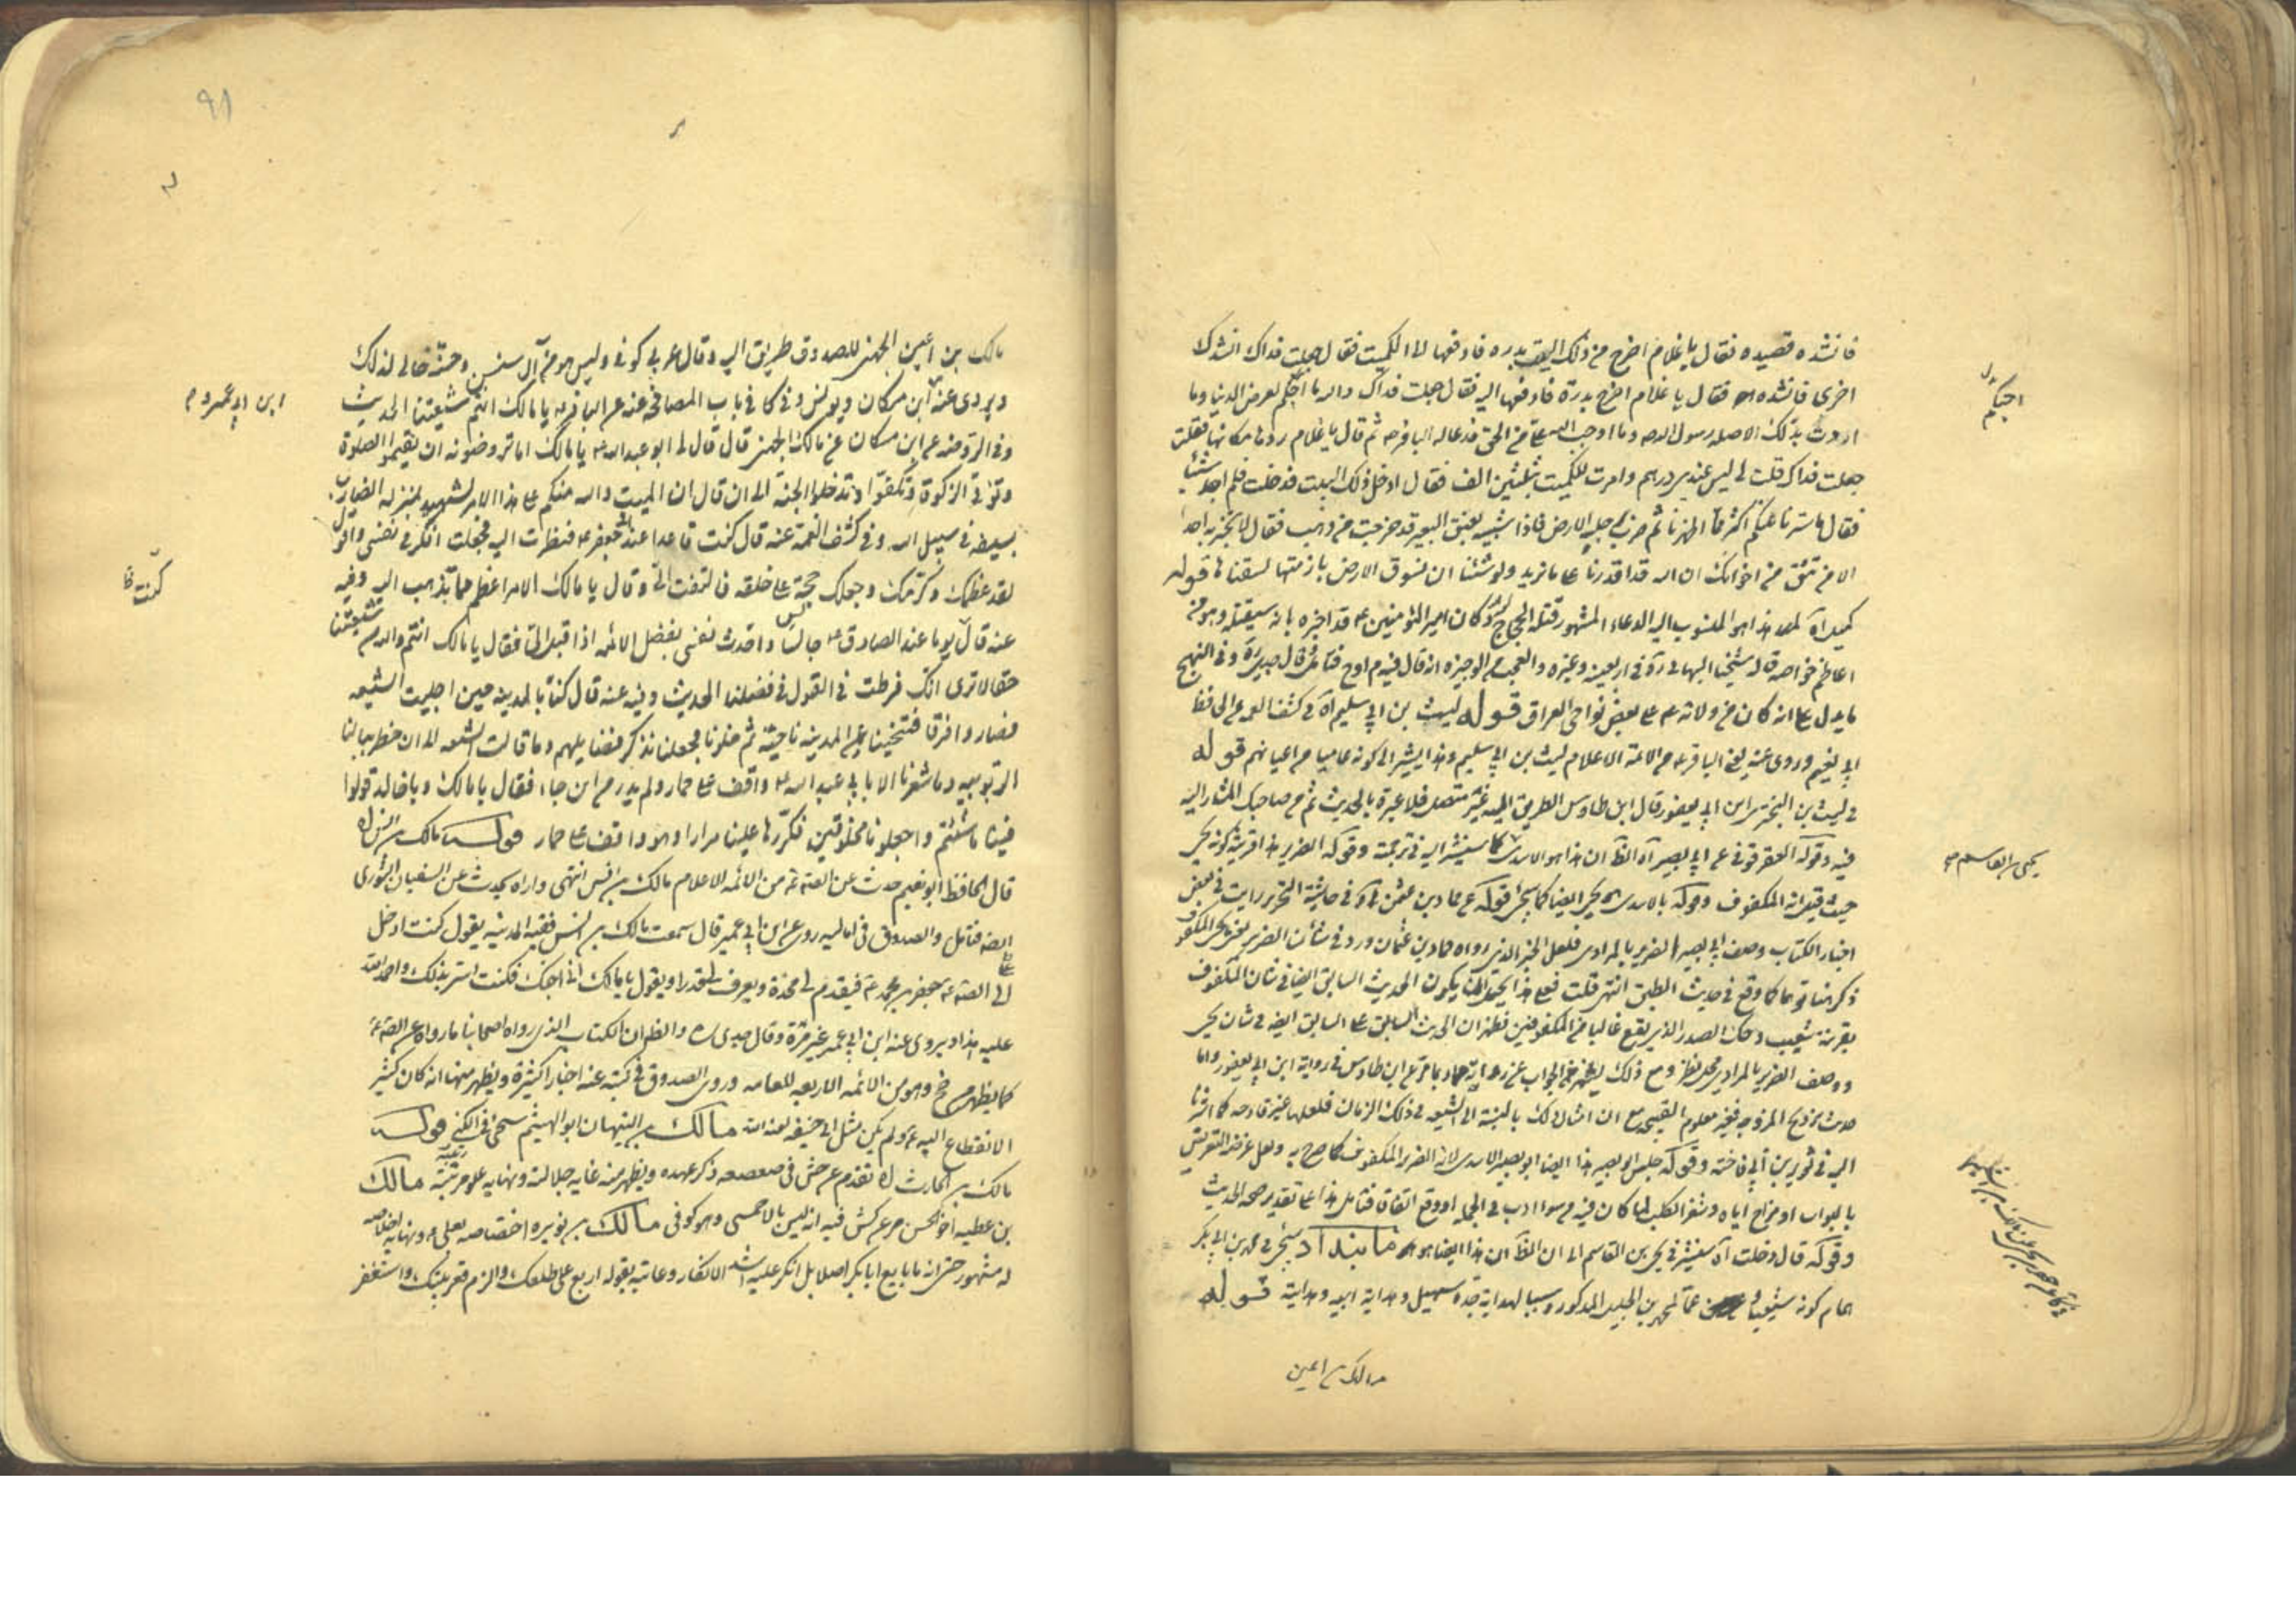 فانشده قصيده فقال يا غلام اخرج من ذلك البيت بدره فادفعها الى الكميت فقال جعلت فداك انشدك
اخرى فانشده فقال يا غلام اخرج بدرة فادفعها اليه فقال جعلت فداك والله ما احبكم لعرض الدنيا وما
اردت بذلك الا صله رسول الله وما اوجب الله على من الحق فدعا له الباقر ثم قال يا غلام ردها مكانها فقلت
جعلت فداك قلت لى ليس عندى درهم وامرت للكميت بثلثين الف فقال ادخل ذلك البيت فدخلت فلم اجد شيئا
فقال ما سترنا عنكم اكثر مما اظهرنا ثم ضرب برجله الارض فاذا شبيه بعنق البعير قد خرجت من ذهب فقال لا تخبر به احدا
الا من تثق من اخوانك ان الله قد اقدرنا على ما نريد ولو شئنا ان نسوق الارض بازمتها لسقناها قوله
كميل آه هذا هو المنسوب اليه الدعاء المشهور قتله الحجاج وكان امير المؤمنين قد اخبره بانه سيقتله وهو من
اعاظم خواصه قال شيخنا البهائى ره فى اربعينه وغيره والعجب من الوجيزه انه قال فيه م اوح فتامل وقال جدى ره وفى النهج
ما يدل على انه كان من ولاته على بعض نواحى العراق قوله ليث بن ابى سليم آه فى كشف الغمه عن الحافظ
ابى نعيم وروى عنه يعنى الباقر من الائمة الاعلام ليث بن ابى سليم وهذا يشير الى كونه عاميا من اعيانهم قوله
فى ليث بن البخترى ابن ابى يعفور قال ابن طاوس الطريق اليه غير متصل فلا عبرة بالحديث ثم من صاحبك المشار اليه
فيه وقوله العقرقوفى عن ابى بصير آه الظ ان هذا هو الاسدى كما سنشير اليه فى ترجمته وقوله الضرير هذا قرينة كونه يحيى
حيث قيل انه المكفوف وقوله بالاسدى يحيى ايضا كما سيجئ قوله عن حماد بن عثمن آه فى حاشية التحرير رايت فى بعض
اخبار الكتاب وصف ابى بصير الضرير بالمرادى فلعل الخبر الذى رواه حماد بن عثمان ورد فى شان الضرير يعنى يحيى المكفوف
ذكر هنا توهما كما وقع فى حديث الطبق انتهى قلت فعلى هذا يحتمل ان يكون الحديث السابق ايضا فى شان المكفوف
بقرينة شعيب وحك الصدر الذى يقع غالبا من المكفوفين فظهر ان الحديث السابق على السابق ايضه فى شان يحيى
ووصف الضرير بالمرادى محل نظر ومع ذلك ليظهر الجواب عن رواية حماد بما مر عن ابن طاوس فى رواية ابن ابى يعفور واما
حديث تزويج المزوجه فغير معلوم القبح مع ان امثال ذلك بالنسبة الى الشيعه فى ذلك الزمان فلعلها غير قادحه كما اشرنا
اليه فى ثوير بن ابى فاخته وقوله جلس ابو بصير هذا ايضا ابو بصير الاسدى لانه الضرير المكفوف كما صرح به ولعل غرضه التعريض
بالبواب او مزاح اياه وشغر الكلب لما كان فيه من سوء ادب فى الجمله او وقع اتفاقا فتامل هذا على تقدير صحه الحديث
وقوله قال دخلت آه سنشير فى يحيى بن القاسم الى ان الظ ان هذا ايضا هو ما بنداذ سيجئ فى محمد بن ابى بكر
همام كونه شيعيا عما لمحمد بن الجليل المذكور وسببا لهداية جده سهيل وهداية ابيه وهدايته قوله
مالك بن اعين
احبكم
يحيى بن القاسم
مالك بن اعين الجهنى للصدوق طريق اليه وقال عربى كوفى وليس هو من آل سنسن وحسنه خالى لذلك
ويروى عنه ابن مسكان ويونس وفى كا فى باب المصافحه عنه عن الباقر يا مالك انتم شيعتنا الحديث
وفى الروضه عن ابن مسكان عن مالك الجهنى قال قال لى ابو عبد الله يا مالك اما ترضون ان تقيموا الصلوة
وتؤتوا الزكوة وتكفوا وتدخلوا الجنة الى ان قال ان الميت والله منكم على هذا الامر لشهيد بمنزله الضارب
بسيفه فى سبيل الله وفى كشف الغمه عنه قال كنت قاعدا عند ابى جعفر فنظرت اليه فجعلت افكر فى نفسى واقول
لقد عظمك وكرمك وجعلك حجة على خلقه فالتفت الى وقال يا مالك الامر اعظم مما تذهب اليه وفيه
عنه قال يوما عند الصادق جالسا واحدث نفسى بفضل الائمه اذا قبل الى فقال يا مالك انتم والله شيعتنا
حقا لا ترى انك فرطت فى القول فى فضلنا الحديث وفيه عنه قال كنا بالمدينه حين اجليت الشيعه
فصاروا فرقا فتنحينا عن المدينه ناحية ثم خلونا فجعلنا نذكر فضايلهم وما قالت الشيعه الى ان خطر ببالنا
الربوبيه وما شعرنا الا بابى عبد الله واقف على حمار ولم ندر من اين جاء فقال يا مالك ويا خالد قولوا
فينا ما شئتم واجعلونا مخلوقين فكررها علينا مرارا وهو واقف على حمار قوله مالك بن انس آه
قال الحافظ ابو نعيم حدث عن الصه من الائمه الاعلام مالك بن انس انتهى واراه يحدث عن السفيان الثورى
ايضه فتامل والصدوق فى اماليه روى عن ابن ابى عمير قال سمعت مالك بن انس فقيه المدينه يقول كنت ادخل
الى الصه جعفر بن محمد فيقدم لى مخدة ويعرف لى قدرا ويقول يا مالك انى احبك فكنت اسر بذلك واحمد الله
عليه هذا ويروى عنه ابن ابى عمير غير مرة وقال جدى ره والظ ان الكتاب الذى رواه اصحابنا ما رواه عن الصه
كما يظهر من خ وهو من الائمه الاربعه للعامه وروى الصدوق فى كتبه عنه اخبارا كثيرة ويظهر منها انه كان كثير
الانقطاع اليه ولم يكن مثل ابى حنيفه لعنه الله مالك بن التيهان ابو الهيثم سيجئ فى الكنى قوله
مالك بن الحارث آه تقدم عن جش فى صعصعه ذكر عهده ويظهر منه غايه جلالته ونهايه علو مرتبته مالك
بن عطيه اخو الحسن مر عن كش فيه انه ليس بالاحمسى وهو كوفى مالك بن نويره اختصاصه بعلى ونهايه اخلاصه
له مشهور حتى انه ما بايع ابا بكر اصلا بل انكر عليه اشد الانكار وعاتبه بقوله اربع على ظلعك والزم قعر بيتك واستغفر
ابن ابى عمير
كنت ظ
٩١